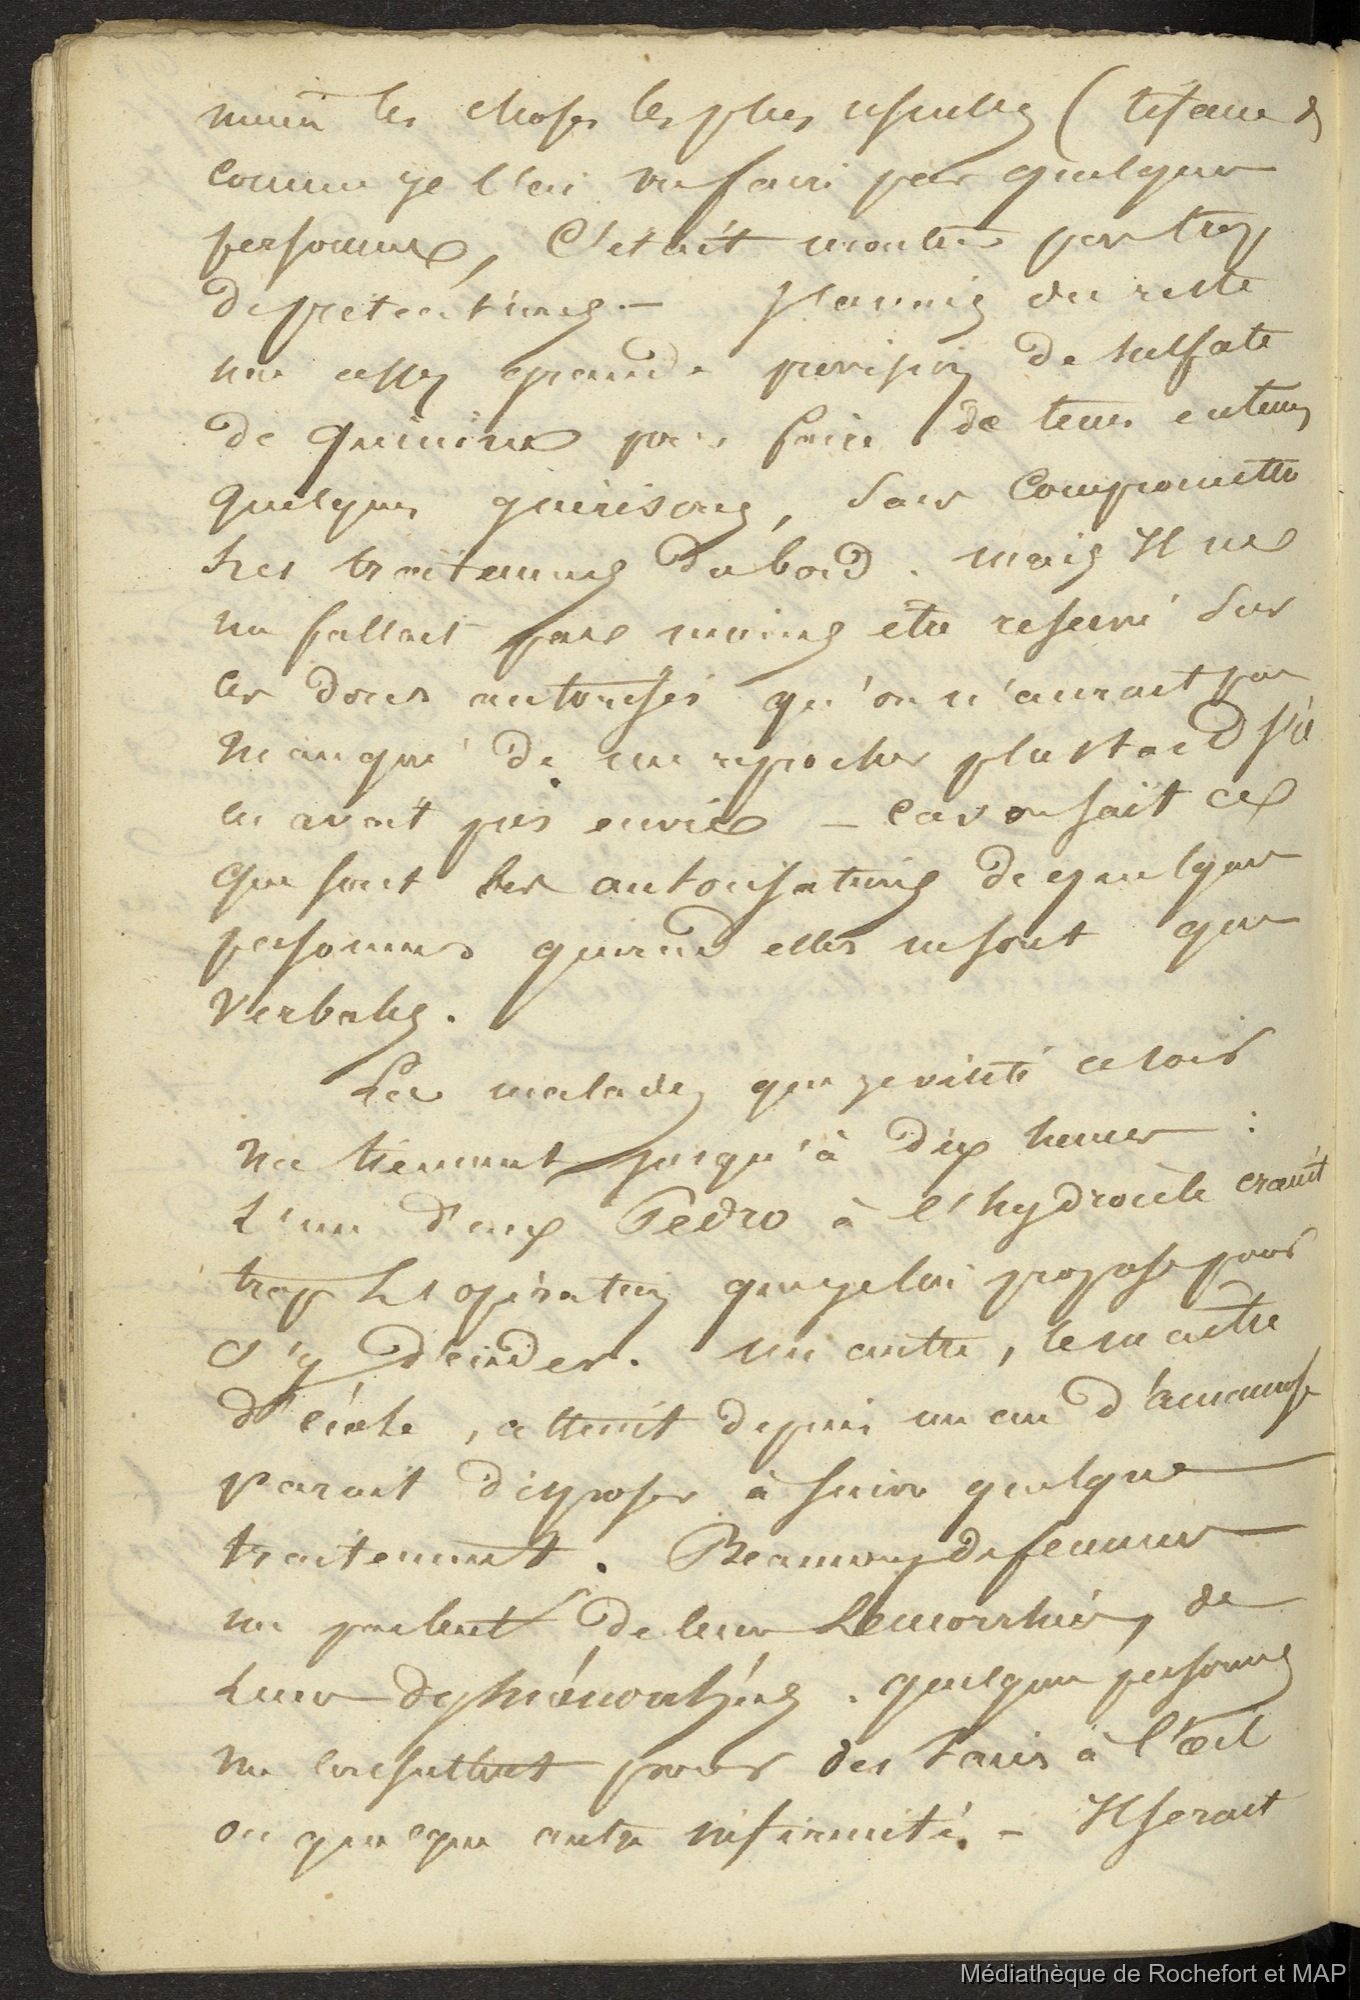 même les choses les plus usuelles (tisane &
comme je l'ai vu faire par quelques
personnes, C'était montrer par trop
de prétentions. — J'avais du reste
une assez grande provision de sulfate
de quinine pour faire de tems en tems
quelques guérisons, sans compromettre
les traitements du bord. mais Il ne
me fallait pas moins être réservé sur
les doses autorisés qu'on n'aurait pas
manqué de me reprocher plus tard s'il
en avait pris envie — car on sait ce
que sont les autorisations de quelques
personnes quand elles ne sont que
verbales.
Les malades que je visite ce soir
me tiennent jusqu'à dix heures :
L'un d'eux Pedro à l'hydrocèle craint
trop les opération que je lui propose pour
s'y décider. un autre, le maitre
d'école, atteint depuis un an d'amaurose
parait disposer à suivre quelque
traitement. Beaucoup de femmes
me parlent de leur Lemorrhées, de
leur dysménorrhées. quelques personnes
me consultent pour des taies à l'œil
ou quelque autre infirmité. — Il serait
Médiathèque de Rochefort et MAP